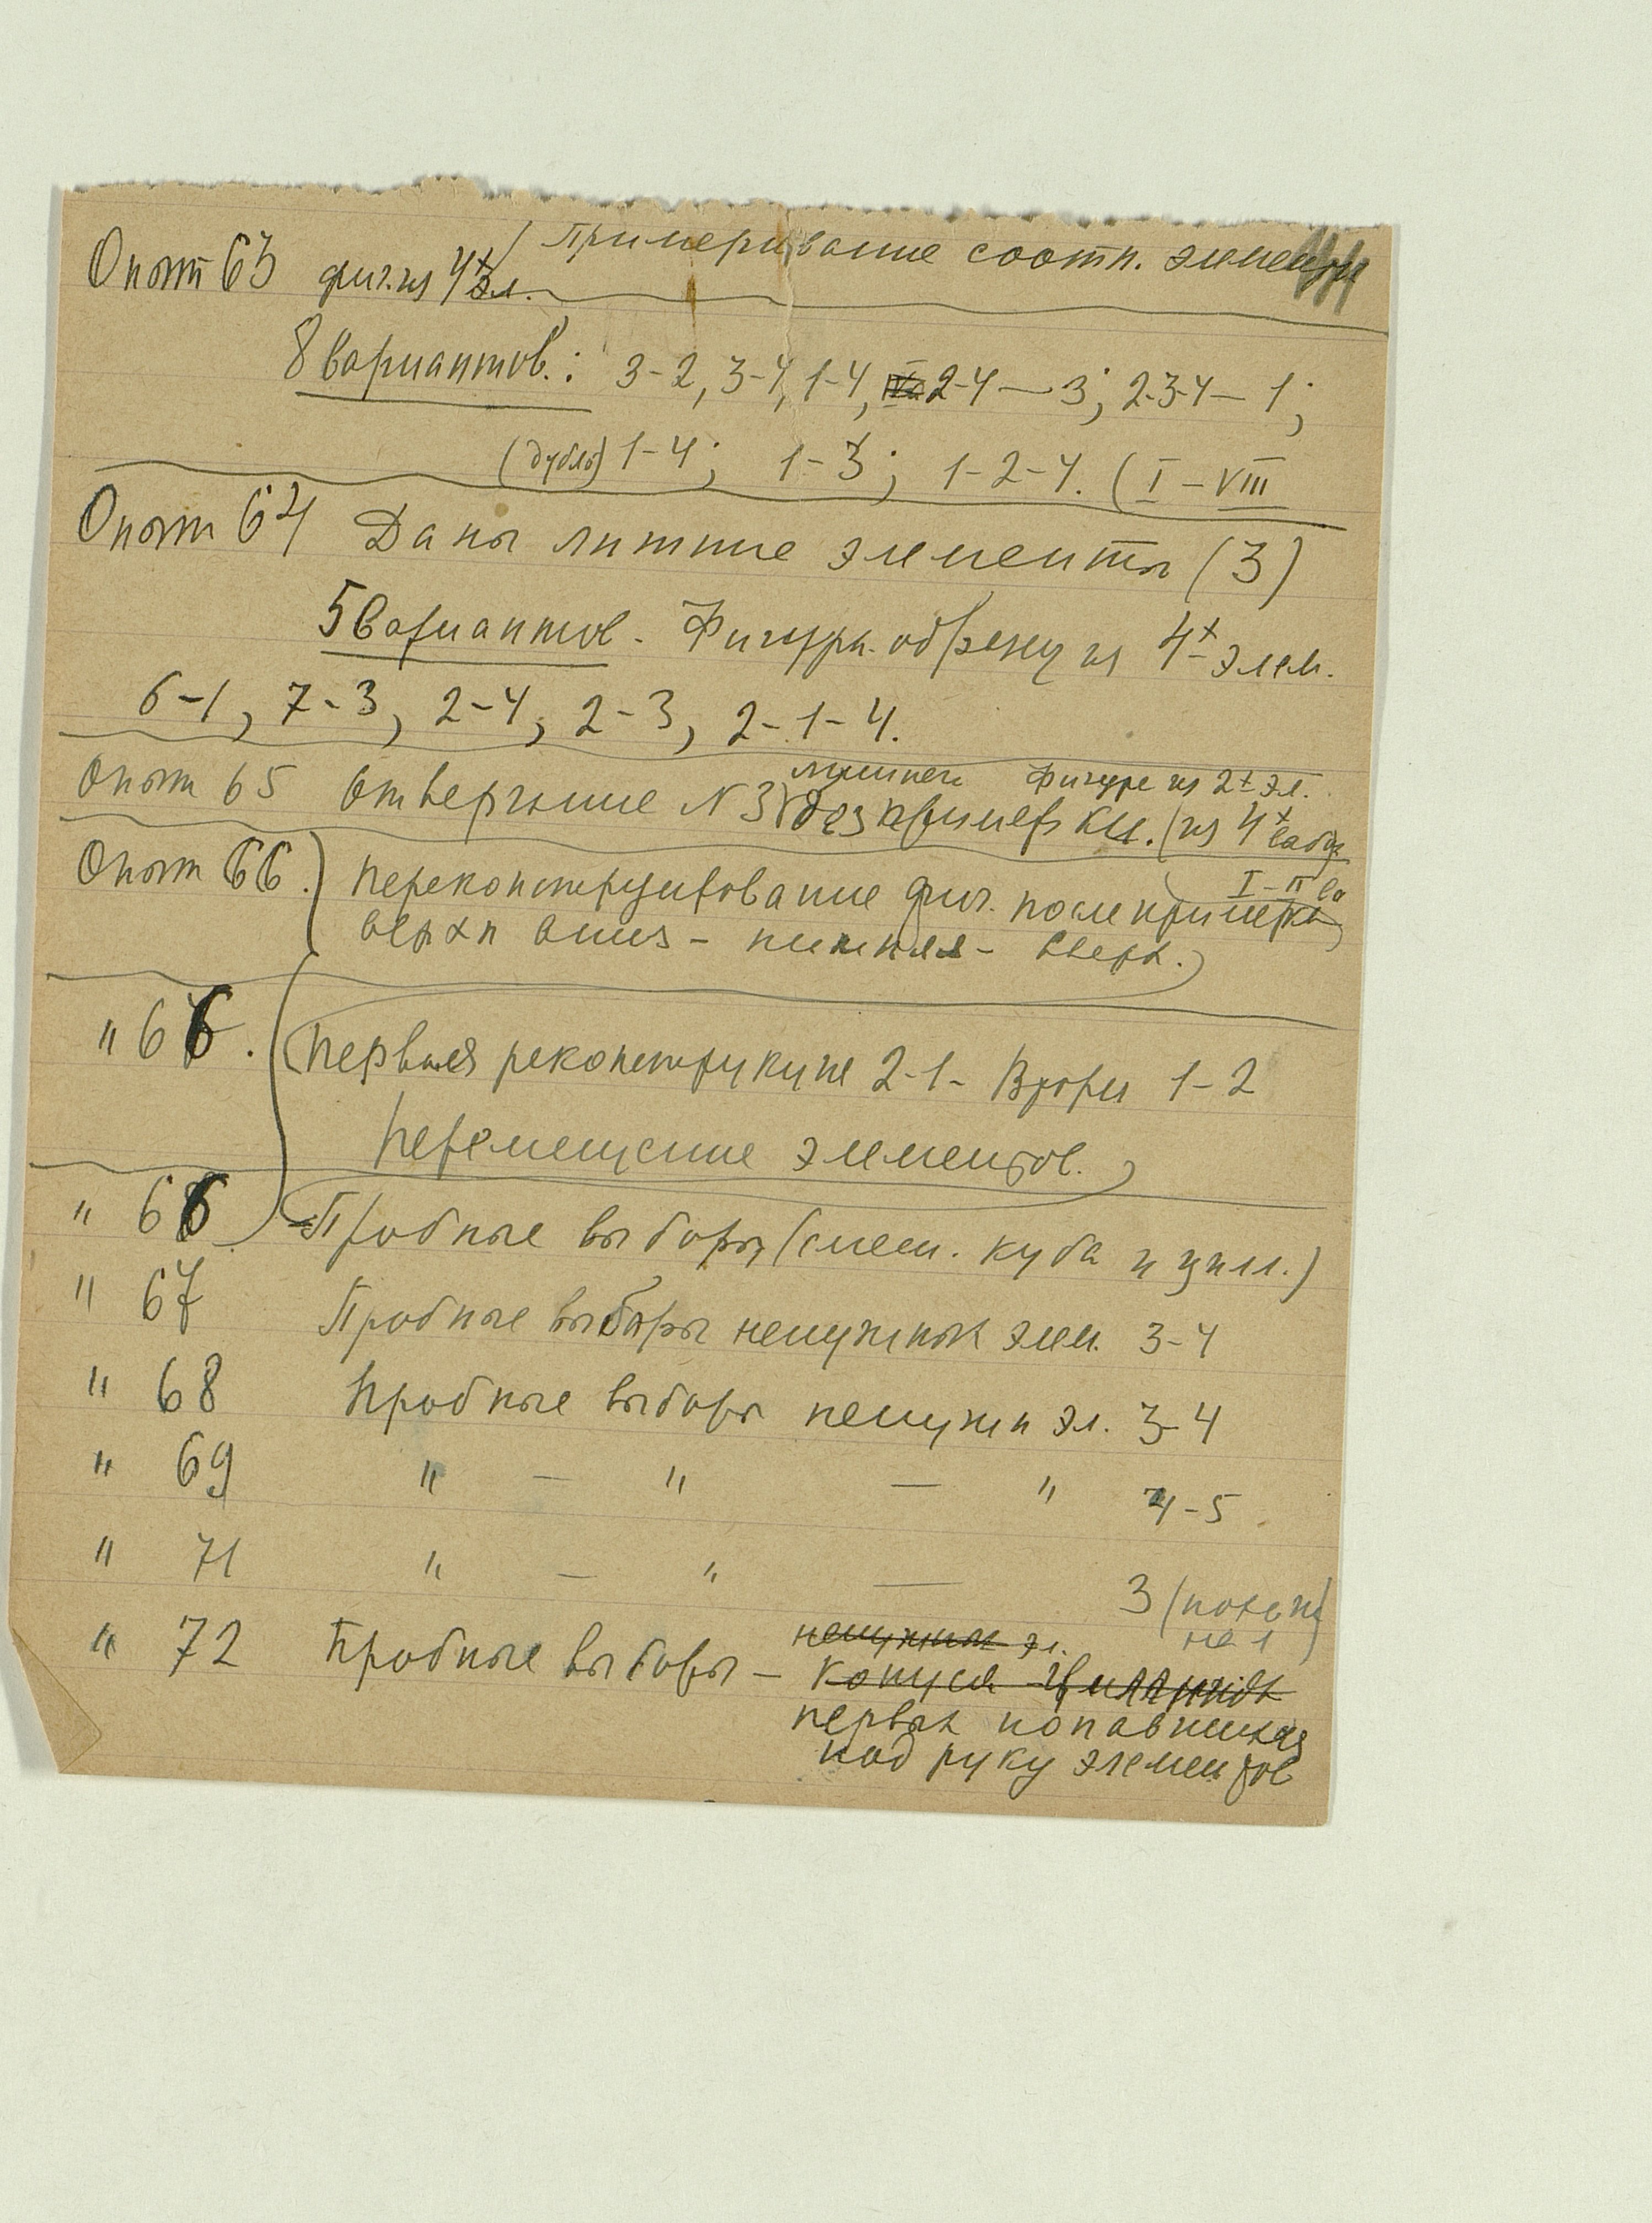 Опыт 63 фиг. из 4х эл. / Примеривание соотн. элементы
8 вариантов: 3-2, 3-4, 1-4, 2-4 — 3; 2-3-4 — 1;
(дубль) 1-4; 1-3; 1-2-4. (I - VIII
Опыт 64 Даны лишние элементы (3)
5 вариантов. Фигура-образец из 4х элем.
6-1, 7-3, 2-4, 2-3, 2-1-4.
лишнего фигуре из 2х эл.
Опыт 65 Отвержение N 3 без примерки. (из 4х
I-II
Опыт 66.) Переконструирование фиг. после примерки
верхн вниз - нижняя - вверх.)
" 66. (Первая реконструкция 2-1- Вторы 1-2
Перемещение элементов.)
" 66 Пробные выборы (смеш. куба и цил.)
" 67 Пробные выборы ненужных элем. 3-4
" 68 Пробные выборы ненужн эл. 3-4
" 69 " — " — " 4-5
" 71 " — " — 3 (
на 1)
ненужных эл.
" 72 Пробные выборы - конуса - цилиндра
первых попавшихся
под руку элементов